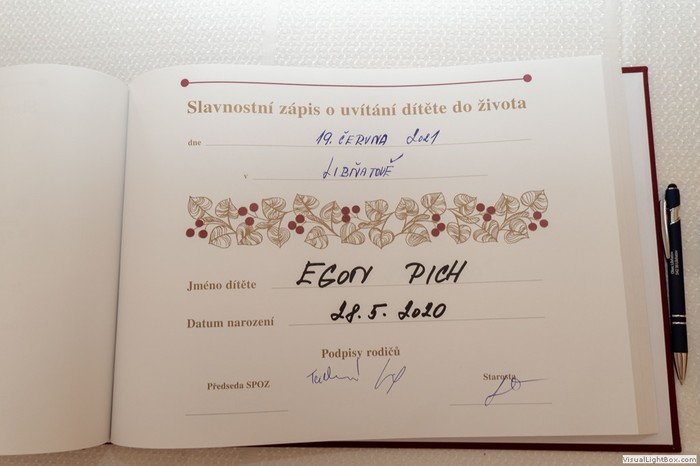 Slavnostní zápis o uvítání dítěte do života
dne 19. ČERVNA 2021
v LIBŇATOVĚ
Jméno dítěte EGON PICH
Datum narození 28.5. 2020
Podpisy rodičů
Předseda SPOZ Starosta
VisualLightBox.com